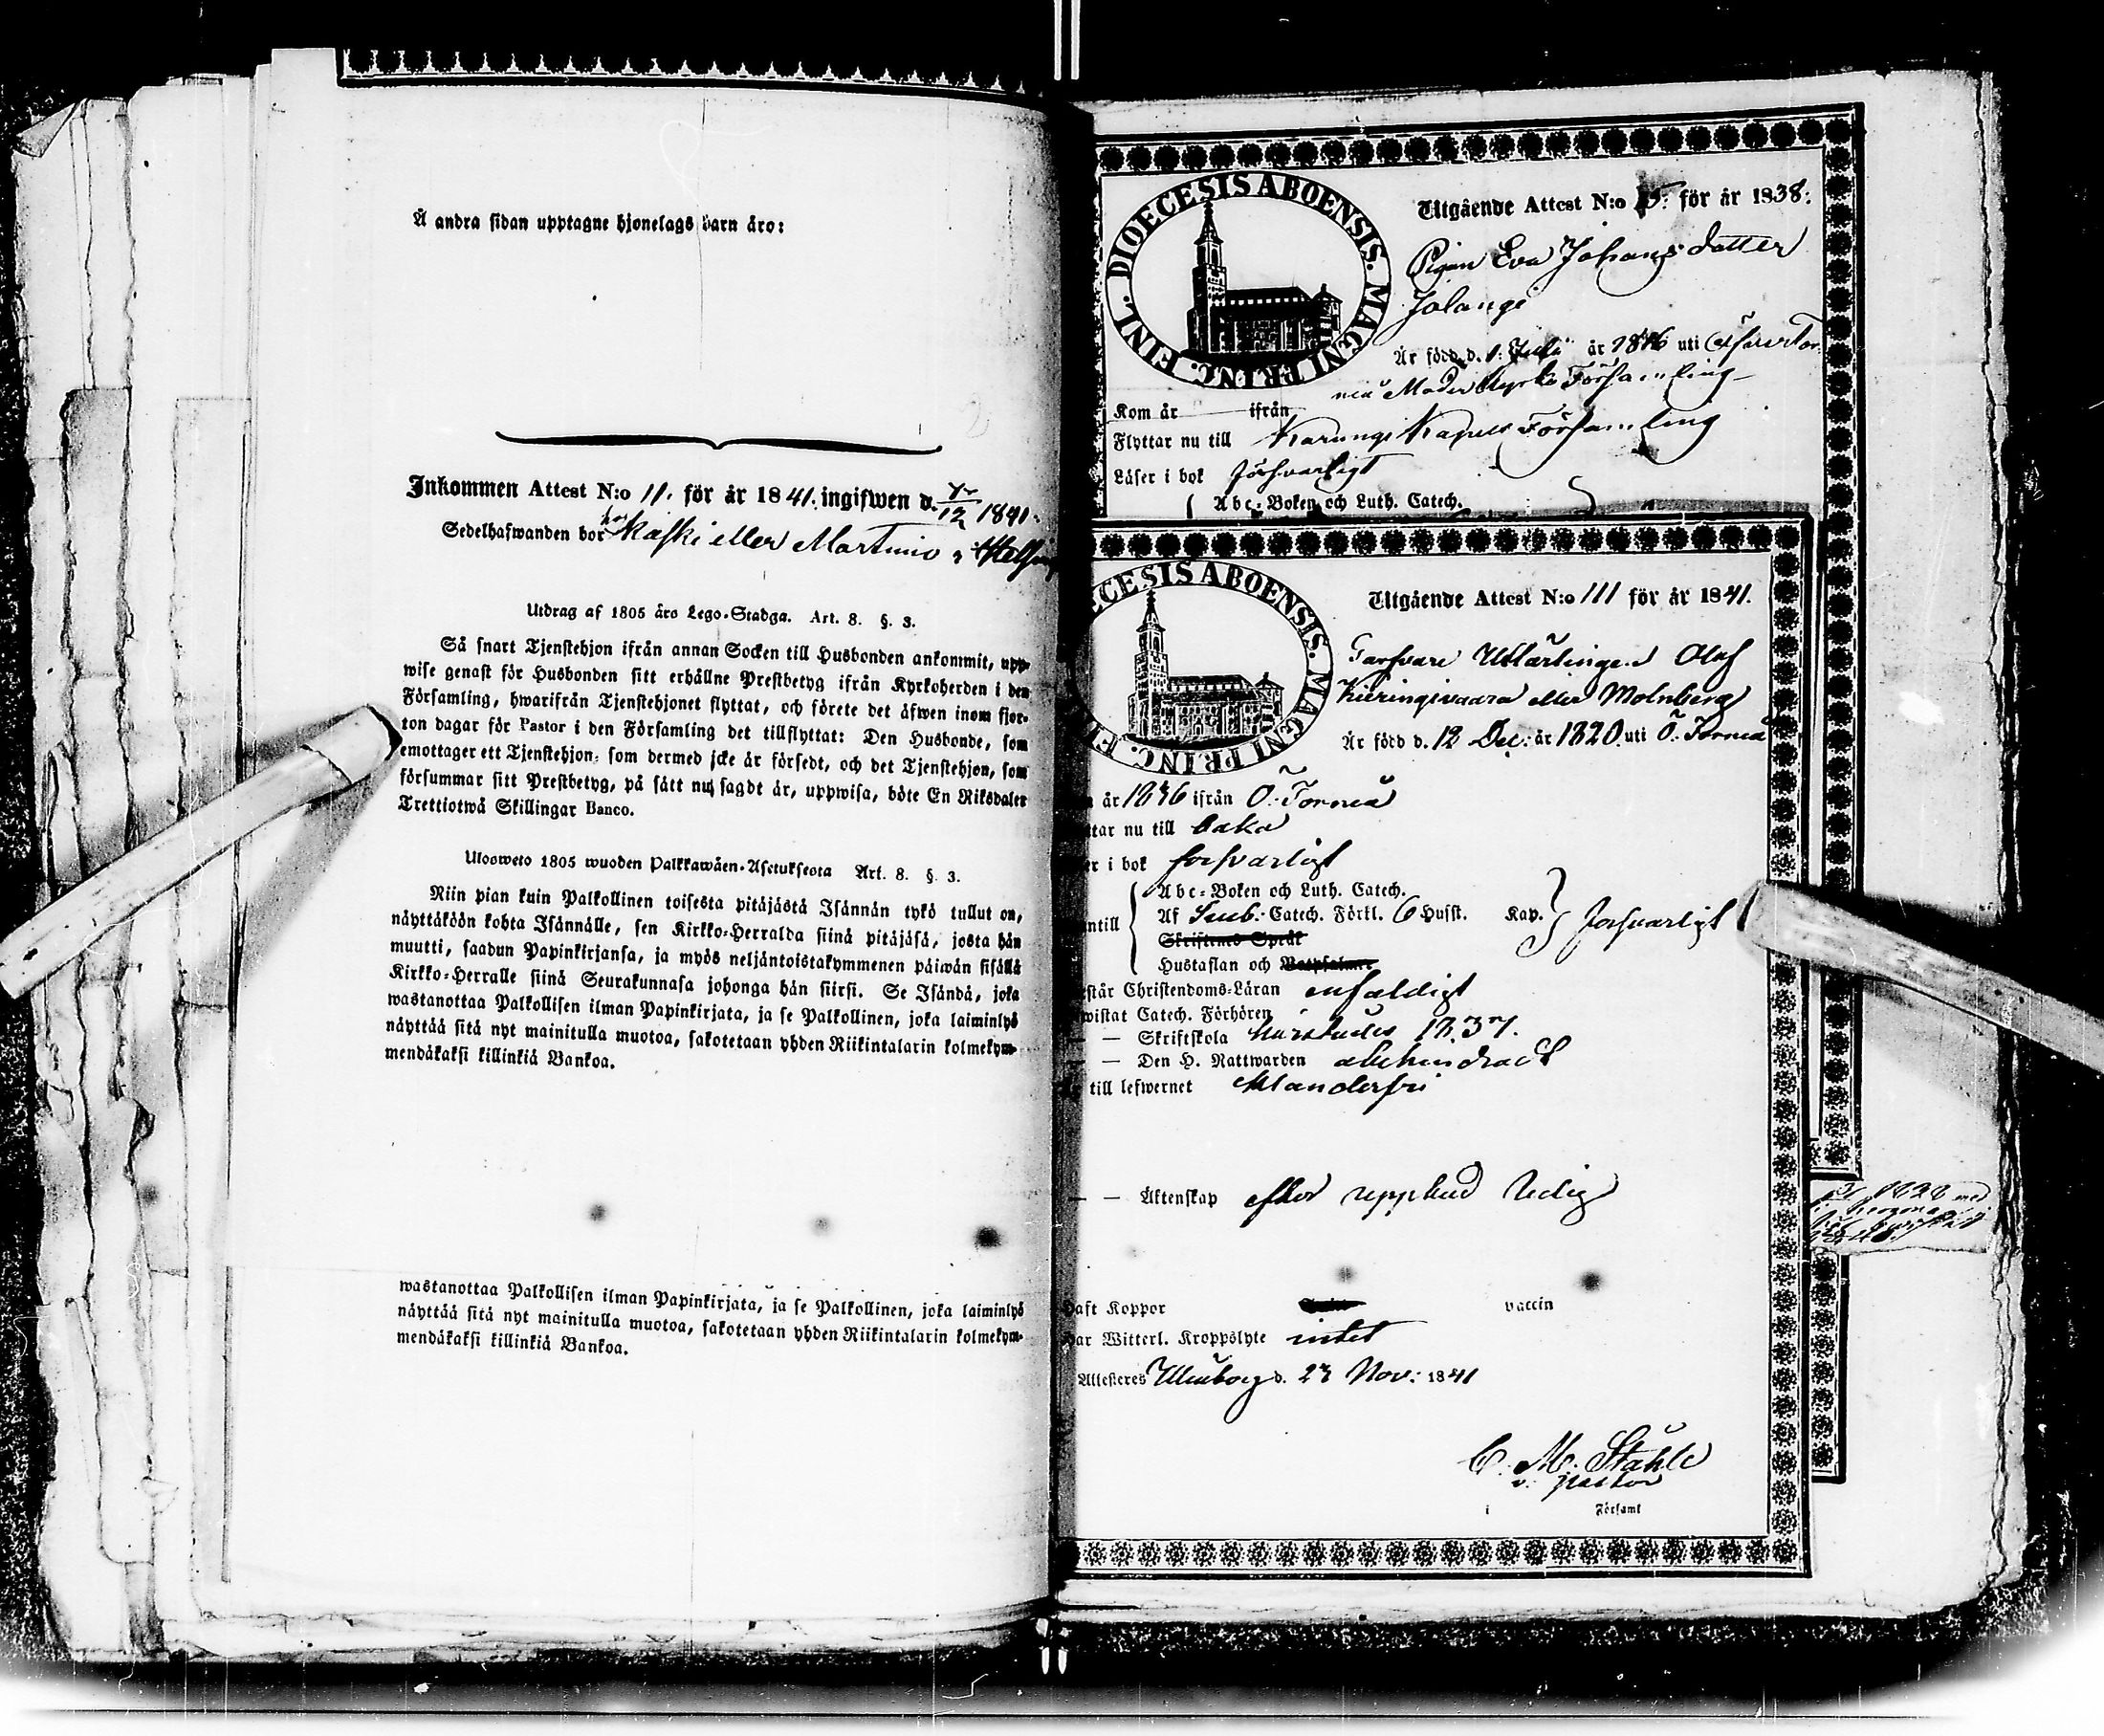 Å andra sidan upptagne hjonelags barn äro:
Inkommen Attest N:o 11. för år 1841. ingifwen d. 12 1841.
Sedelhafwanden bor hos Kaski eller Martimo i
Utdrag af 1805 års Lego-Stadga. Art. 8. §. 3.
Så snart Tjenstehjon ifrån annan Socken till Husbonden ankommit, upp-
wise genast för Husbonden sitt erhållne Prestbetyg ifrån Kyrkoherden i den
Församling, hwarifrån Tjenstehjonet flyttat, och förete det äfwen inom fjor-
ton dagar för Pastor i den Församling det tillflyttat: Den Husbonde, som
emottager ett Tjenstehjon, som dermed icke är försedt, och det Tjenstehjon, som
försummar sitt Prestbetyg, på sätt nu sagdt är, uppwisa, böte En Riksdaler
Trettiotwå Skillingar Banco.
Ulosweto 1805 wuoden Palkkawäen-Asetuksesta Art. 8. §. 3.
Niin pian kuin Palkollinen toisesta pitäjästä Isännän tykö tullut on,
näyttäköön kohta Isännälle, sen Kirkko-Herralda siinä pitäjäsä, josta hän
muutti, saadun Papinkirjansa, ja myös neljäntoistakymmenen päiwän sisällä
Kirkko-Herralle siinä Seurakunnasa johonga hän siirsi. Se Isändä, joka
wastanottaa Palkollisen ilman Papinkirjata, ja se Palkollinen, joka laiminlyö
näyttää sitä nyt mainitulla muotoa, sakotetaan yhden Riikintalarin kolmekym-
mendäkaksi killinkiä Bankoa.
wastanottaa Palkollisen ilman Papinkirjata, ja se Palkollinen, joka laiminlyö
näyttää sitä nyt mainitulla muotoa, sakotetaan yhden Riikintalarin kolmekym-
mendäkaksi killinkiä Bankoa.
DIOECESIS ABOENSIS. MAGNI PRINC. FINL.
Utgående Attest N:o 15. för år 1838.
Pigan Eva Johansdotter
Jolange
Är född d. 1. Juli år 1816 uti ÖfverTor-
neå Moderkyrko Församling
Kom år ifrån
Flyttar nu till Karungi Kapells Församling
Läser i bok försvarligt
Abc-Boken och Luth. Catech.
CESIS ABOENSIS. MAGNI PRINC. FI
Utgående Attest N:o 111 för år 1841.
Garfvare Utlärlingen Olof
Kieringivaara eller Molnberg
Är född d. 12 Dec: år 1820. uti Ö. Torneå
år 1836 ifrån Ö. Torneå
ttar nu till baka
er i bok försvarligt
Abc-Boken och Luth. Catech.
ntill Af Sveb. Catech. Förkl. 6 Husst. Kap. försvarligt
Skriftenes Språk
Hustaflan och Botpsalmer
står Christendoms-Läran enfaldigt
wistat Catech. Förhören
— Skriftskola härstädes 1837.
— Den H. Nattwarden obehindradt
till lefwernet klanderfri
— — Äktenskap efter uppbud ledig
Haft Koppor vaccin
Har Witterl. Kroppslyte intet
Attesteres Uleåborg d. 23 Nov: 1841
C. M. Ståhle
v. pastor
i Församl